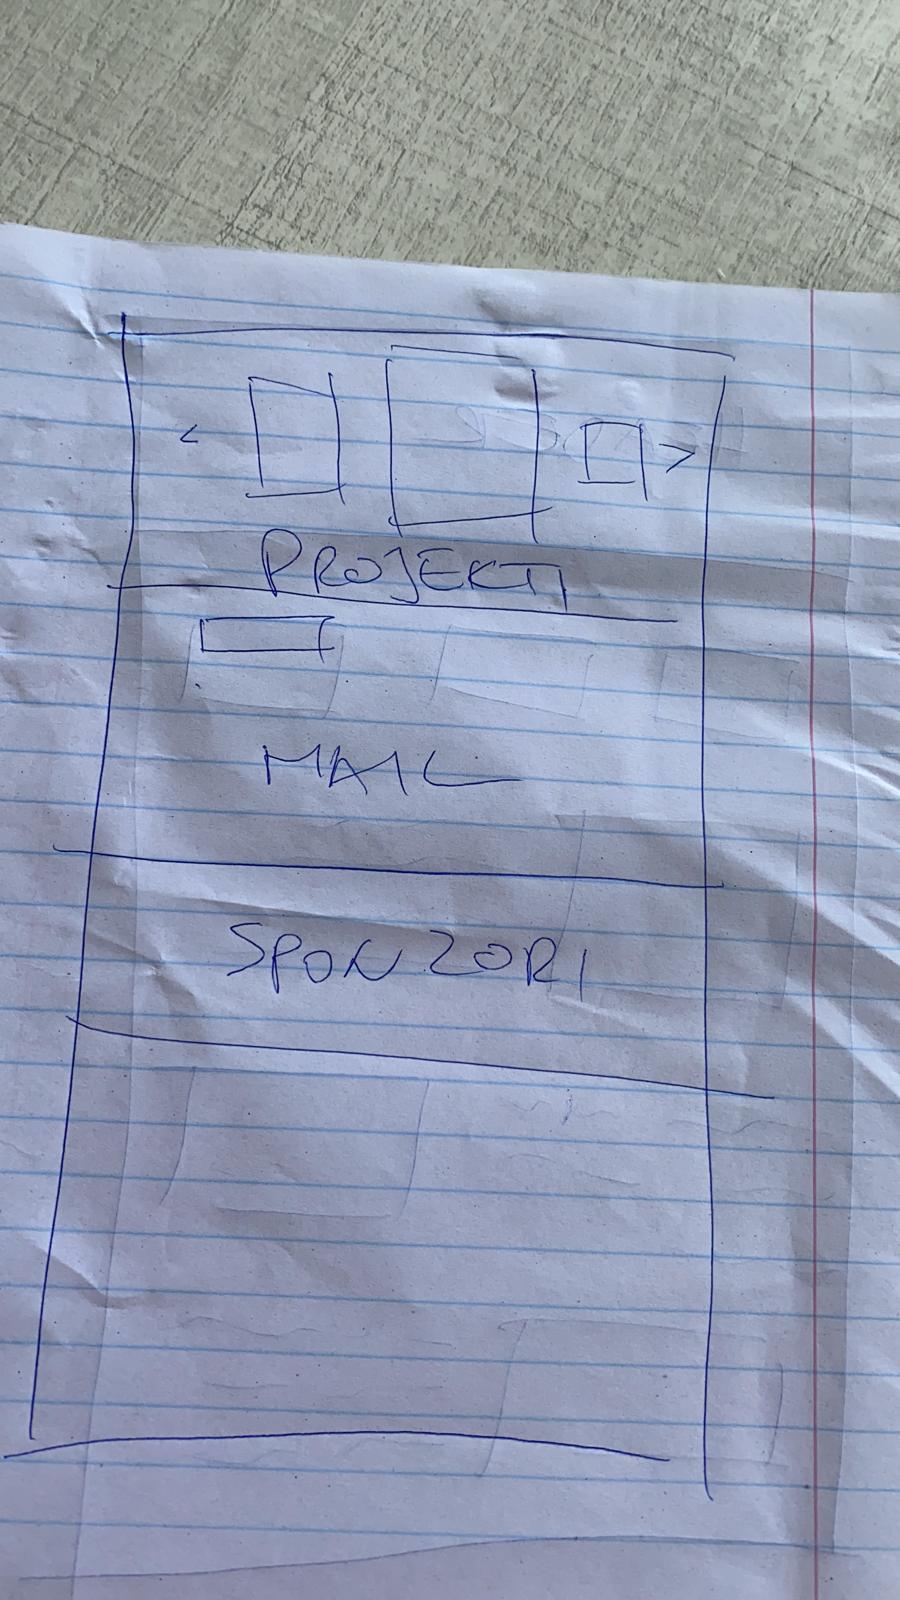 < >
PROJEKTI
MAIL
SPONZORI